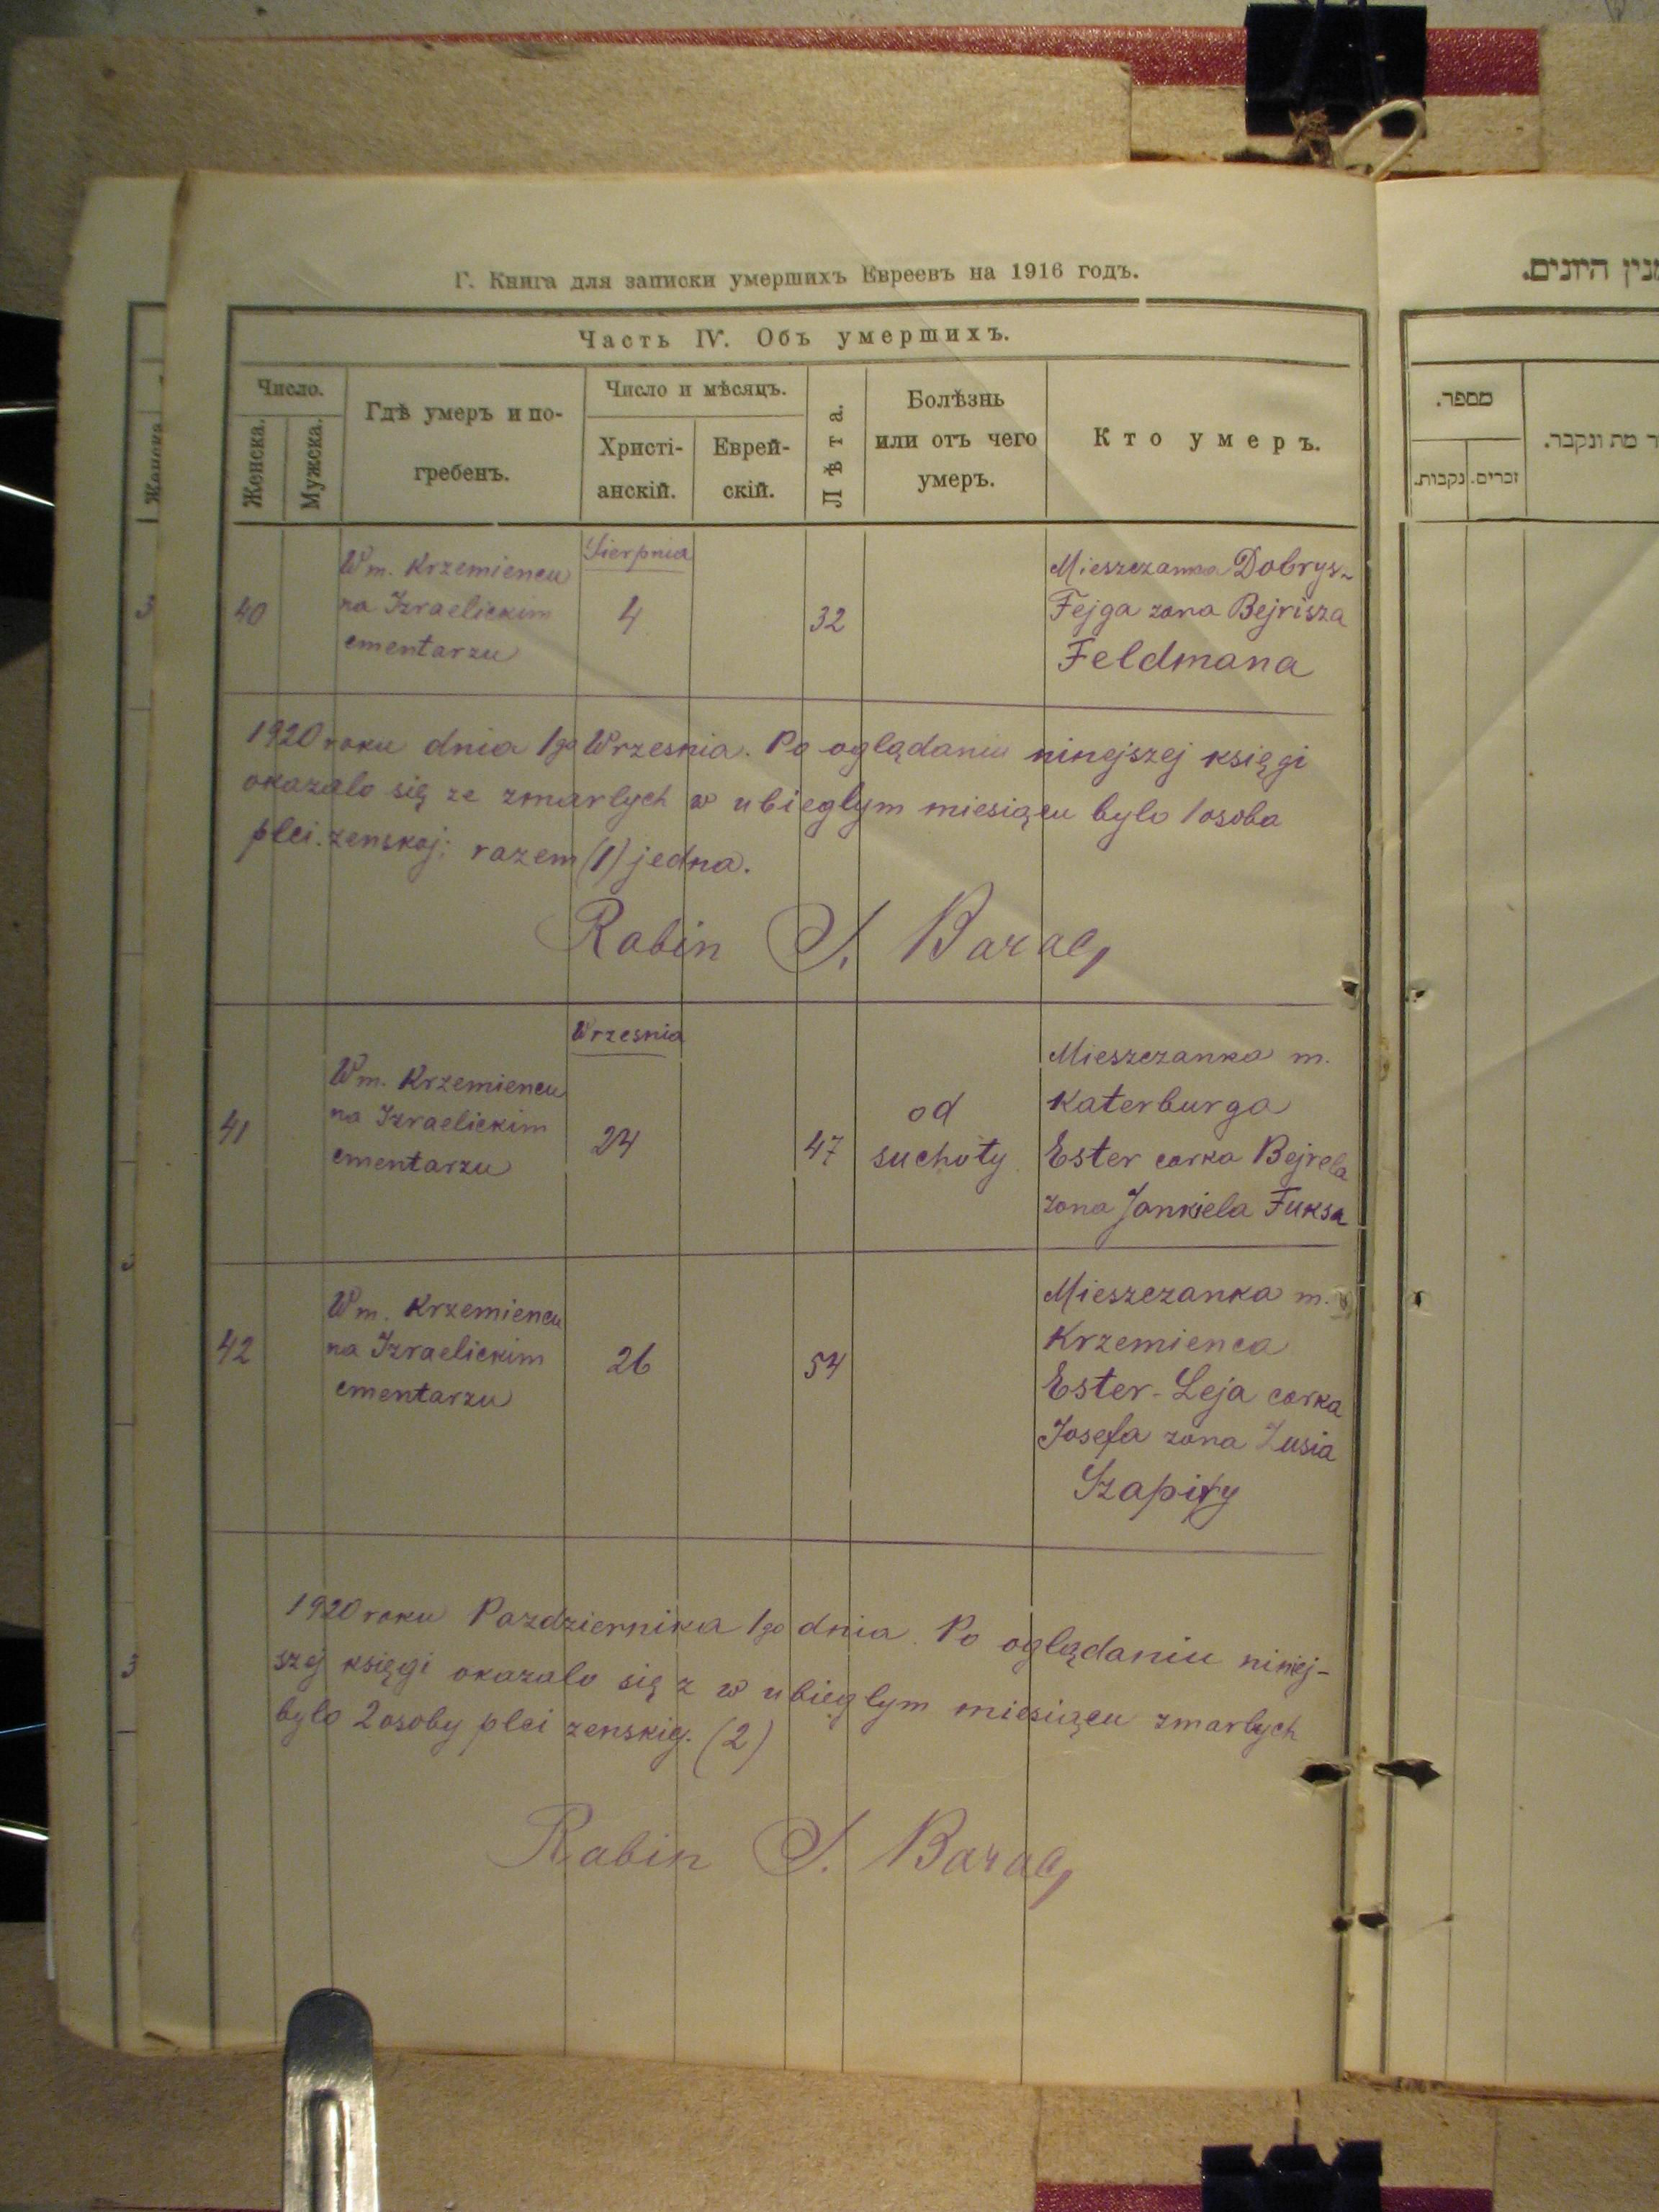 Г. Книга для записки умершихъ Евреевъ на 1916 годъ.
Часть IV. Объ умершихъ.
Число.
Женска.
Мужска.
Гдѣ умеръ и по-
гребенъ.
Число и мѣсяцъ.
Христі-
анскій.
Еврей-
скій.
Лѣта.
Болѣзнь
или отъ чего
умеръ.
Кто умеръ.
40
W m. Krzemiencu
na Izraelickim
cmentarzu
Sierpnia
4
32
Mieszczanka Dobrys-
Fejga zona Bejrisza
Feldmana
1920 roku dnia 1go Wrzesnia. Po oglądaniu ninejszej księgi
okazalo się ze zmarlych w ubieglym miesiącu bylo 1 osoba
plci. zenskoj; razem (1) jedna.
Rabin S. Barac
41
W m. Krzemiencu
na Izraelickim
cmentarzu
Wrzesnia
24
47
od
suchoty
Mieszczanka m.
Katerburga
Ester corka Bejrela
zona Jankiela Fuksa
42
W m. Krzemiencu
na Izraelickim
cmentarzu
26
54
Mieszczanka m.
Krzemienca
Ester-Leja corka
Josefa zona Zusia
Szapiry
1920 roku Pazdziernika 1go dnia. Po oglądaniu niniej-
szej księgi okazalo się z w ubieglym miesiącu zmarlych
bylo 2 osoby plci zenskiej. (2)
Rabin S. Barac
מנין היונים.
מספר.
זכרים.
נקבות.
ר מת ונקבר.
Женска